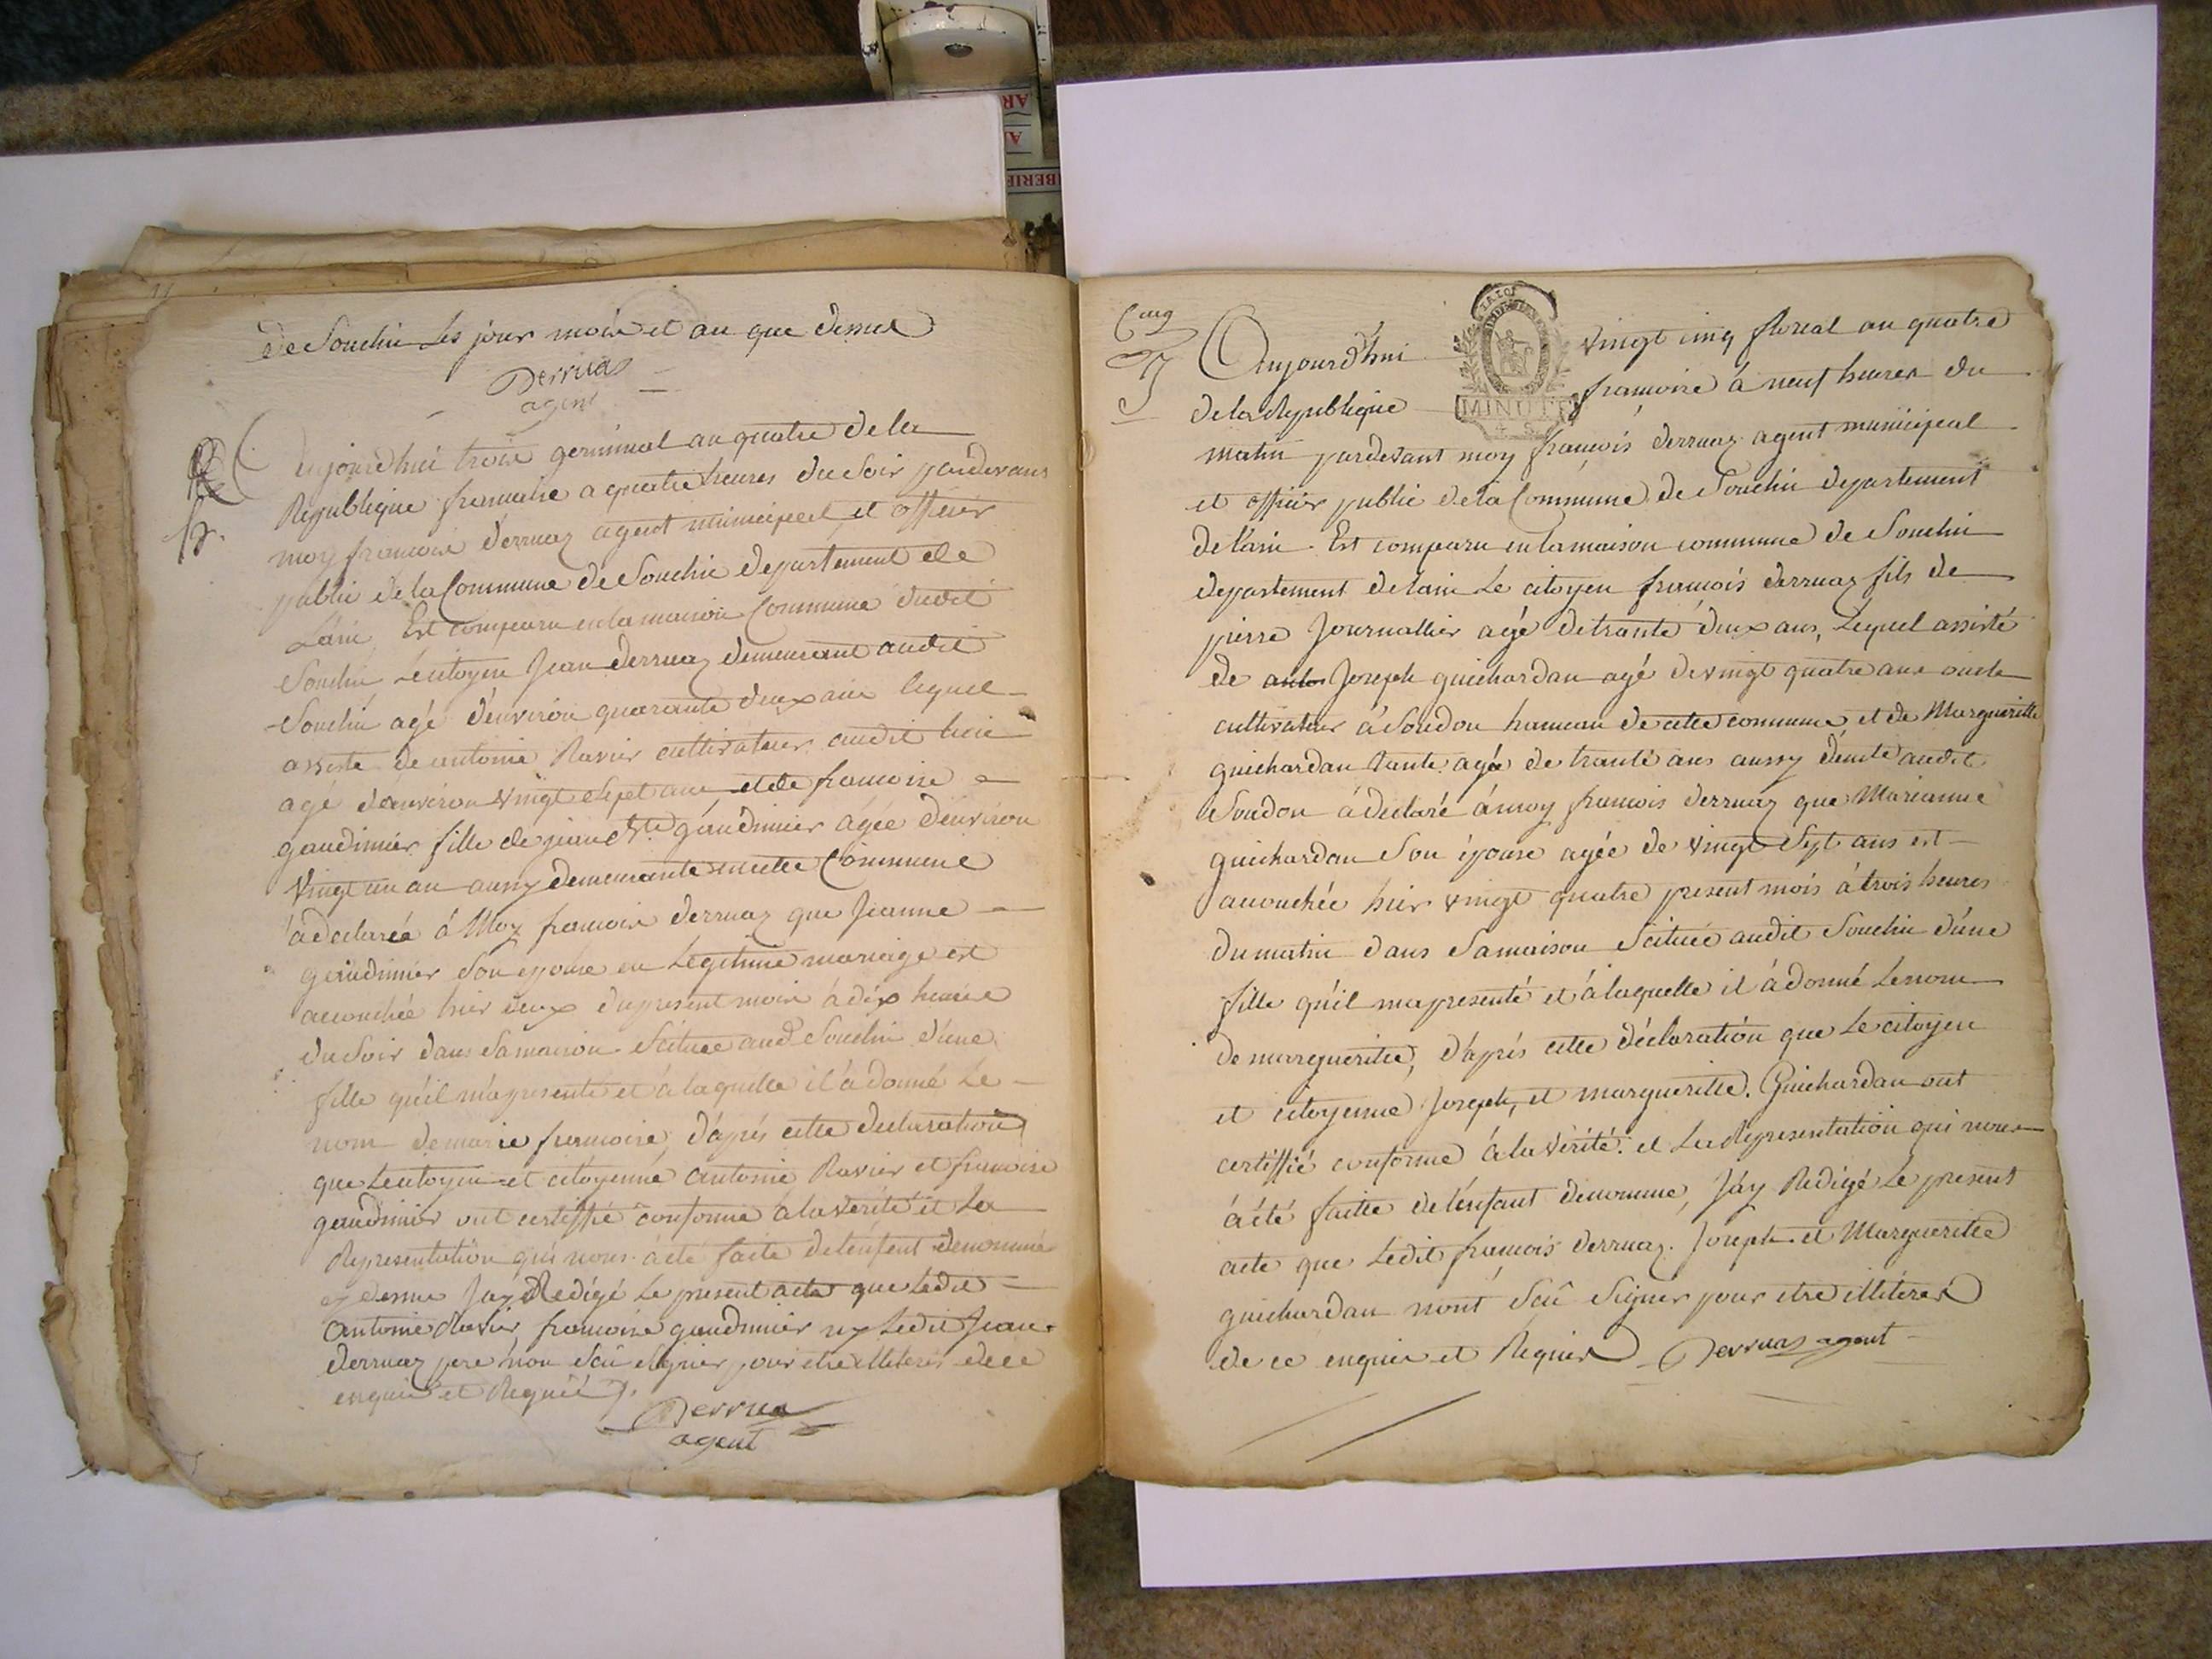 de Souclin les jour mois et an que dessus
Derruas
agent
Aujourdhui trois germinal an quatre de la
Republique francaise a quatre heures du soir pardevant
moy francois derruaz agent municipal et officier
public de la Commune de Souclin departement de
Lain Est comparu en la maison Commune dudit
Souclin Le citoyen Jean derruaz demeurant audit
Souclin agé d'environ quarante deux ans lequel
assisté de antoine Ravier cultivateur audit lieu
agé d'environ vingt sept ans et de francoise
gaudinier fille de jean gaudinier agée d'environ
vingt un an aussy demeurante Commune
à declaréa à Moy francois derruaz que Jeanne
gaudinier son epouse en Legitime mariage est
accouchée hier deux du present mois à dix heures
du soir dans sa maison scituee aud Souclin d'une
fille qu'il m'a presenté et à laquelle il à donné Le
nom de marie francoise, d'après cette declaration
que Le citoyen et citoyenne antoine Ravier et francoise
gaudinier ont certiffié conforme à la verité et La
Representation qui nous à été faite de l'enfant denommé
cy dessus Jay Redigé Le present acte que Ledit
antoine Ravier, francoise gaudinier ny Ledit Jean
derruaz pere non scû signer pour etre illiteres de ce
enquis et Requis
Derrua
agent
Cinq
Aujourd'hui vingt cinq floreal an quatre
MINUTE
de la Republique francoise à neuf heures du
matin pardevant moy françois derruaz agent municipal
et officier public de la Commune de Souclin departement
de l'ain. Est comparu en la maison commune de Souclin
departement de lain Le citoyen francois derruaz fils de
pierre Journallier agé de trante deux ans, Lequel assisté
de Joseph guichardan agé de vingt quatre ans oncle
cultivateur à Soudon hameau de cette commune et de Margueritte
guichardan tante agée de trante ans aussy audit
Soudon à declaré à moy francois derruaz que Marianne
guichardan son épouse agée de vingt sept ans est
accouchée hier vingt quatre present mois à trois heures
du matin dans sa maison scituée audit Souclin d'une
fille qu'il ma presenté et à laquelle il à donné Le nom
de margueritte, d'après cette déclaration que Le citoyen
et citoyenne Joseph, et margueritte. Guichardan ont
certiffié conforme à la vérité. et La Representation qui nous
à été faitte de l'enfant denommé, J'ay Redigé Le present
acte que Ledit françois derruaz. Joseph et Margueritte
guichardan n'ont scû signer pour etre illiteres
de ce enquis et Requis Derruas agent